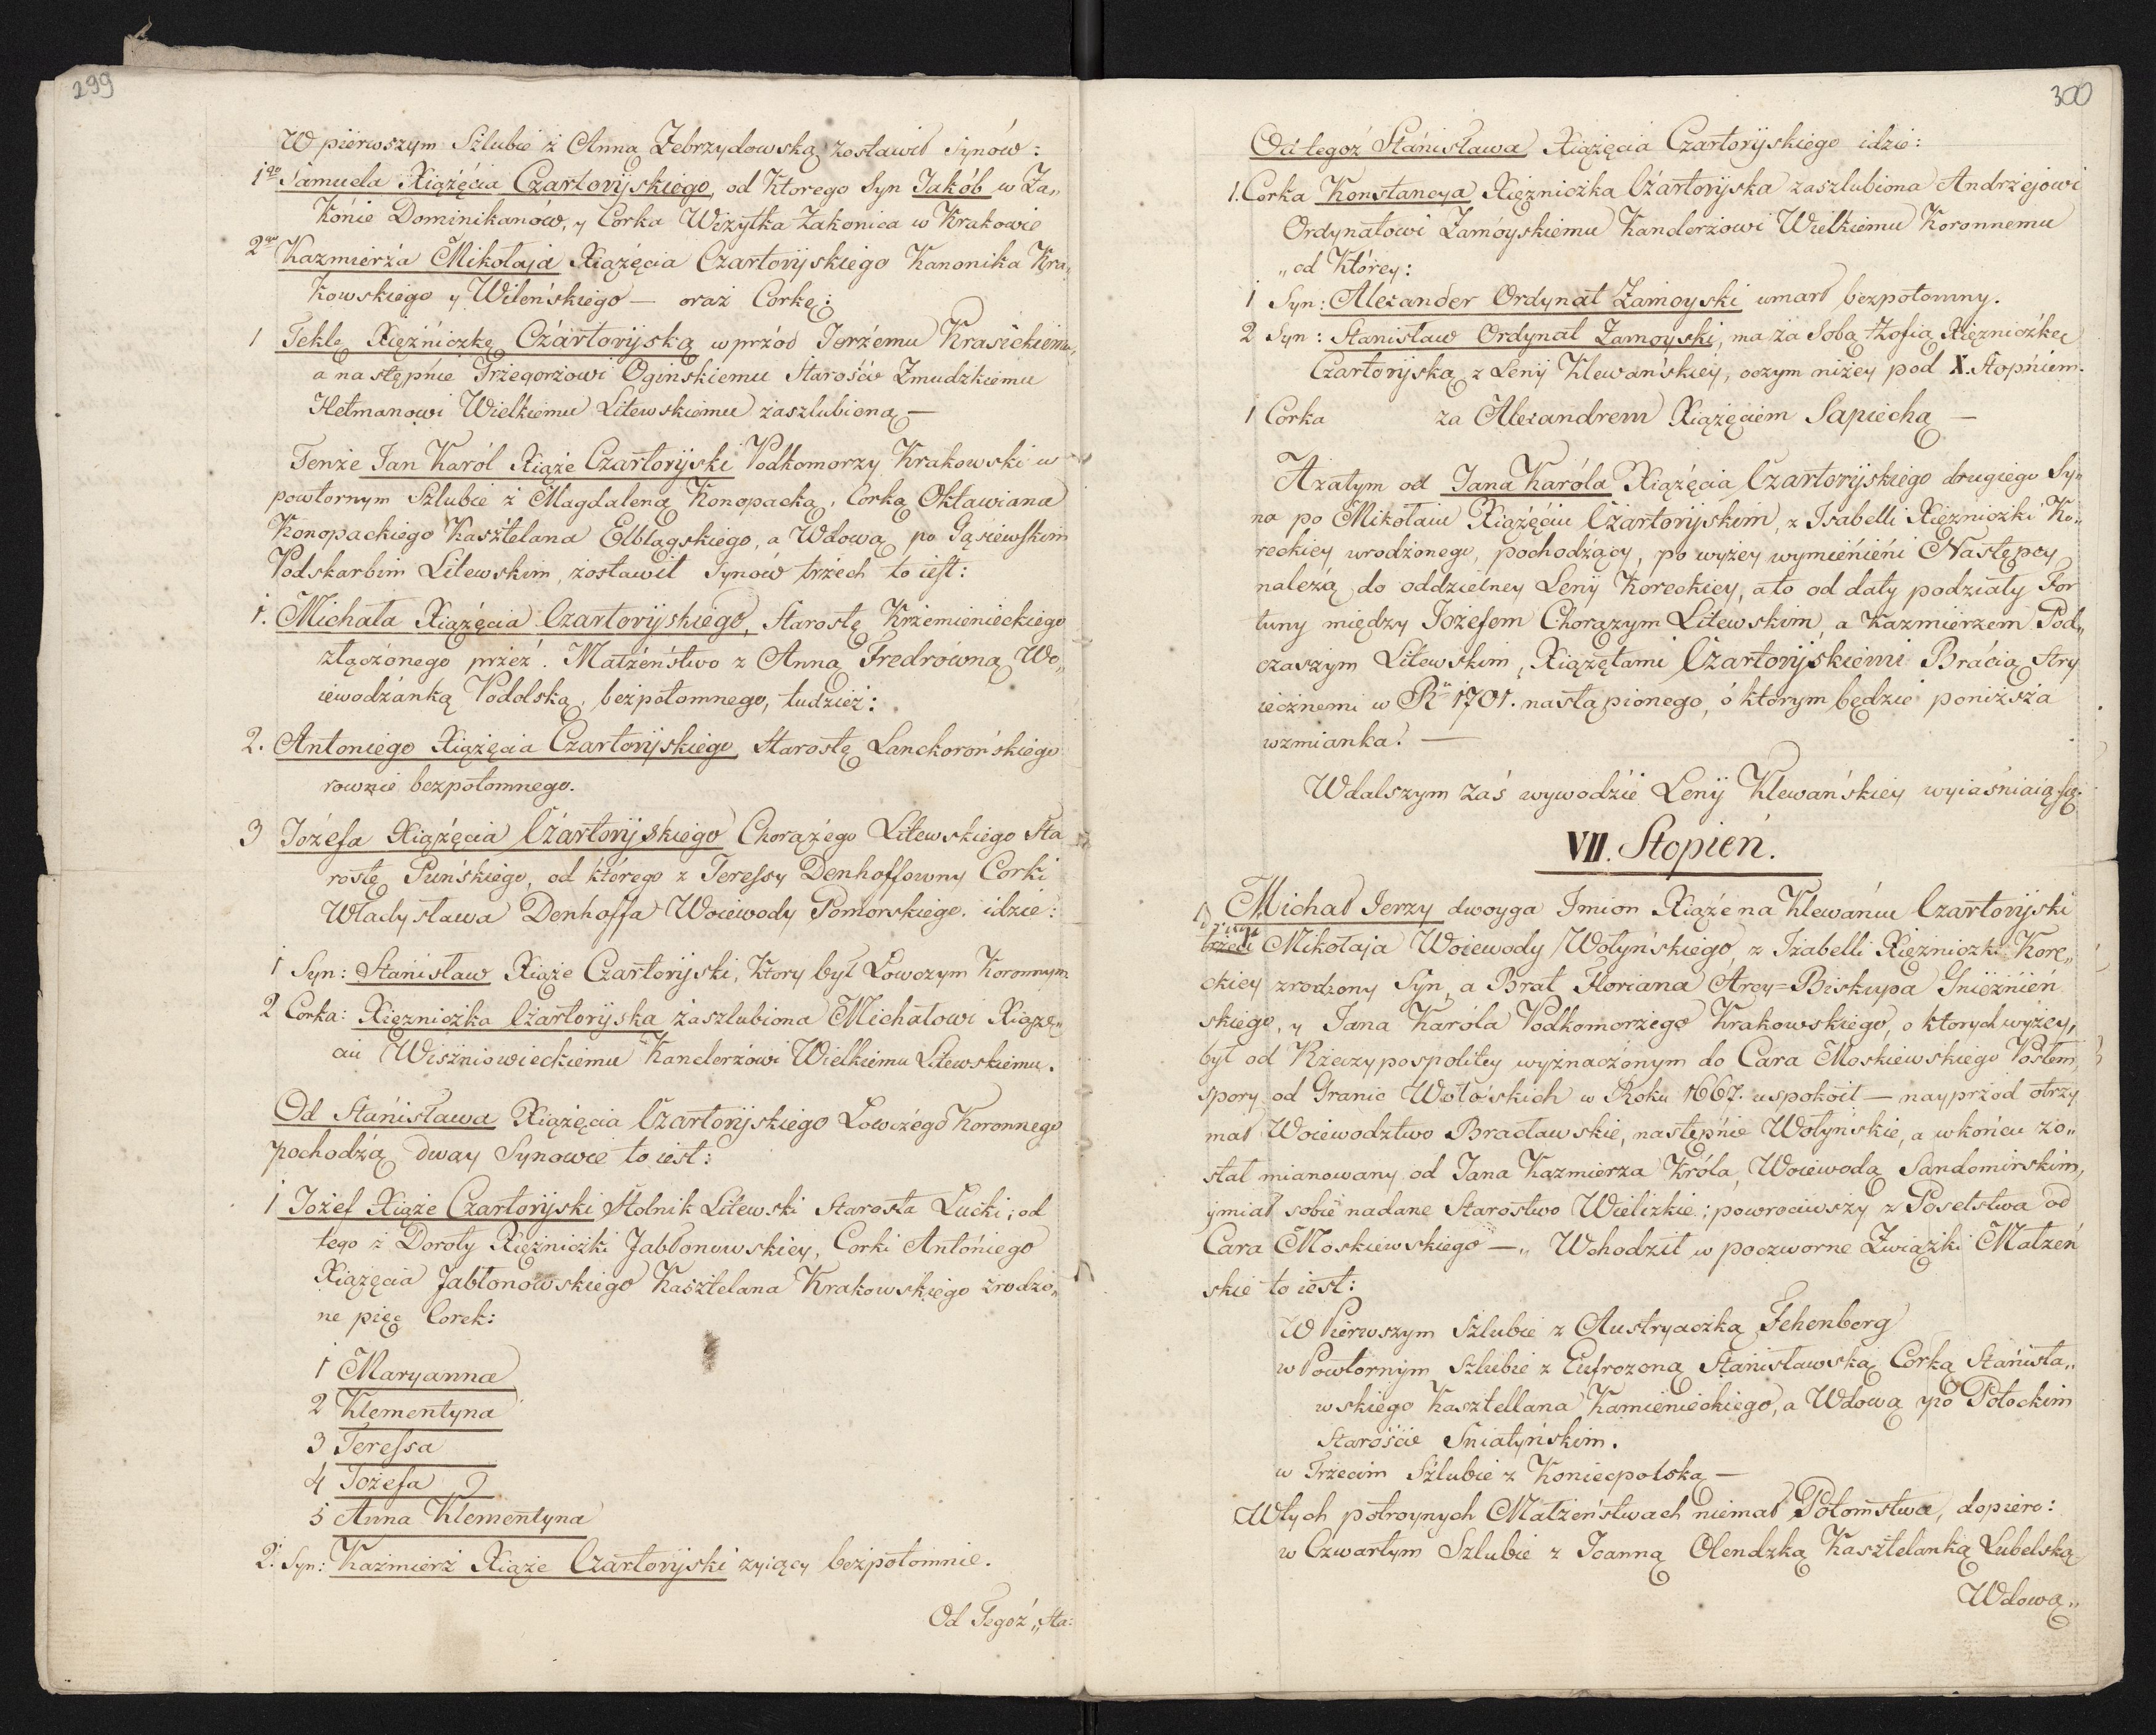 299
W pierwszym Szlubie z Anną Zebrzydowską zostawił Synów:
1go Samuela Xiążęcia Czartoryjskiego, od Ktorego Syn Jakób w Za„
konie Dominikanów, y Corka Wizytka Zakonica w Krakowie
2go Kazmierza Mikołaja Xiążęcia Czartoryjskiego Kanonika Kra„
kowskiego y Wileńskiego — oraz Corkę:
1 Teklę Xięźniczkę Czartoryjską wprzód Jerzemu Krasickiemu,
a następnie Grzegorzowi Ogińskiemu Starośćie Zmudzkiemu
Hetmanowi Wielkiemu Litewskiemu zaszlubioną —
Tenże Jan Karól Xiąże Czartoryjski Podkomorzy Krakowski w
powtornym Szlubie z Magdaleną Konopacką, Corką Oktawiana
Konopackiego Kasztelana Elbląskiego, a Wdową po Gąsiewskim
Podskarbim Litewskim, zostawił Synów trzech to iest:
1. Michała Xiążęcia Czartoryjskiego, Starostę Krzemienieckiego
złączonego przez Małżeństwo z Anną Fredrówną Wo„
iewodzanką Podolską, bezpotomnego, tudzież:
2. Antoniego Xiążęcia Czartoryjskiego Starostę Lanckorońskiego
rownie bezpotomnego.
3 Józefa Xiążęcia Czartoryjskiego Chorążego Litewskiego Sta
rostę Puńskiego, od którego z Teressy Denhoffowny Corki
Władysława Denhoffa Woiewody Pomorskiego. idzie:
1 Syn: Stanisław Xiąże Czartoryjski, Ktory był Łowczym Koronnym
2 Corka: Xięzniczka Czartoryjska zaszlubiona Michałowi Xiążę„
ciu Wiszniowieckiemu Kanclerzowi Wielkiemu Litewskiemu.
Od Stanisława Xiążęcia Czartoryjskiego Łowczego Koronnego
pochodzą dway Synowie to iest:
1 Jozef Xiąże Czartoryjski Stolnik Litewski Starosta Łucki; od
tego z Doroty Xięzniczki Jabłonowskiey, Corki Antoniego
Xiążęcia Jabłonowskiego Kasztelana Krakowskiego zrodzo„
ne pięć Corek:
1 Maryanna
2 Klementyna
3 Teressa
4 Jozefa
5 Anna Klementyna
2. Syn: Kazmierz Xiąże Czartoryjski zyiący bezpotomnie.
Od Tegoż „Sta:
300
Od tegoż Stanisława Xiążęcia Czartoryjskiego idzie:
1. Corka Konstancya Xięzniczka Czartoryjska zaszlubiona Andrzejowi
Ordynatowi Zamoyskiemu Kanclerzowi Wielkiemu Koronnemu
„od Którey:
1 Syn: Alexander Ordynat Zamoyski umarł bezpotomny.
2 Syn: Stanisław Ordynat Zamoyski, ma za Sobą Zofią Xięzniczkę
Czartoryjską z Lenij Klewańskiey, oczym niżey pod X. Stopniem.
1 Corka za Alexandrem Xiążęciem Sapiechą —
A zatym od Jana Karóla Xiążęcia Czartoryjskiego drugiego Sy„
na po Mikołaiu Xiążęciu Czartoryjskim, z Isabelli Xięzniczki Ko„
reckiey urodzonego, pochodzący, po wyżey wymienieni Następcy
należą do oddzielney Lenij Koreckiey, a to od daty podziały For
tuny między Jozefem Chorązym Litewskim, a Kazmierzem Pod„
czaszym Litewskim, Xiążętami Czartoryjskiemi Bracią Stry
iecznemi w Ru 1701. nastąpionego, o ktorym będzie poniższa
wzmianka. —
Wdalszym zaś wywodzie Lenij Klewańskiey wyiaśniaią się:
VII. Stopień.
Michał Jerzy dwoyga Imion Xiąże na Klewaniu Czartoryjski
trzeci Mikołaja Woiewody Wołyńskiego, z Izabelli Xięzniczki Kore„
ckiey zrodzony Syn, a Brat Floriana Arcy=Biskupa Gnieźnień
skiego, y Jana Karóla Podkomorzego Krakowskiego, o ktorych wyżey,
był od Rzeczypospolitey wyznaczonym do Cara Moskiewskiego Posłem,
spory od Granic Wołoskich w Roku 1667. uspokoił — nayprzod otrzy
mał Woiewodztwo Bracławskie, następnie Wołyńskie, a wkońcu zo„
stał mianowany od Jana Kazmierza Króla, Woiewodą Sandomirskim,
ymiał sobie nadane Starostwo Wielizkie: powrociwszy z Poselstwa od
Cara Moskiewskiego — „ Wchodził w poczworne Związki Małzeń
skie to iest:
W Pierwszym Szlubie z Austryaczką Fehenberg
w Powtornym Szlubie z Eufrozoną Stanisławską Corką Stanisła„
wskiego Kasztellana Kamienieckiego, a Wdową po Potockim
Staroście Sniatyńskim.
w Trzecim Szlubie z Koniecpolską —
W tych potroynych Małzeństwach niemał Potomstwa, dopiero:
w Czwartym Szlubie z Joanną Olendzką Kasztelanką Lubelską
Wdową„